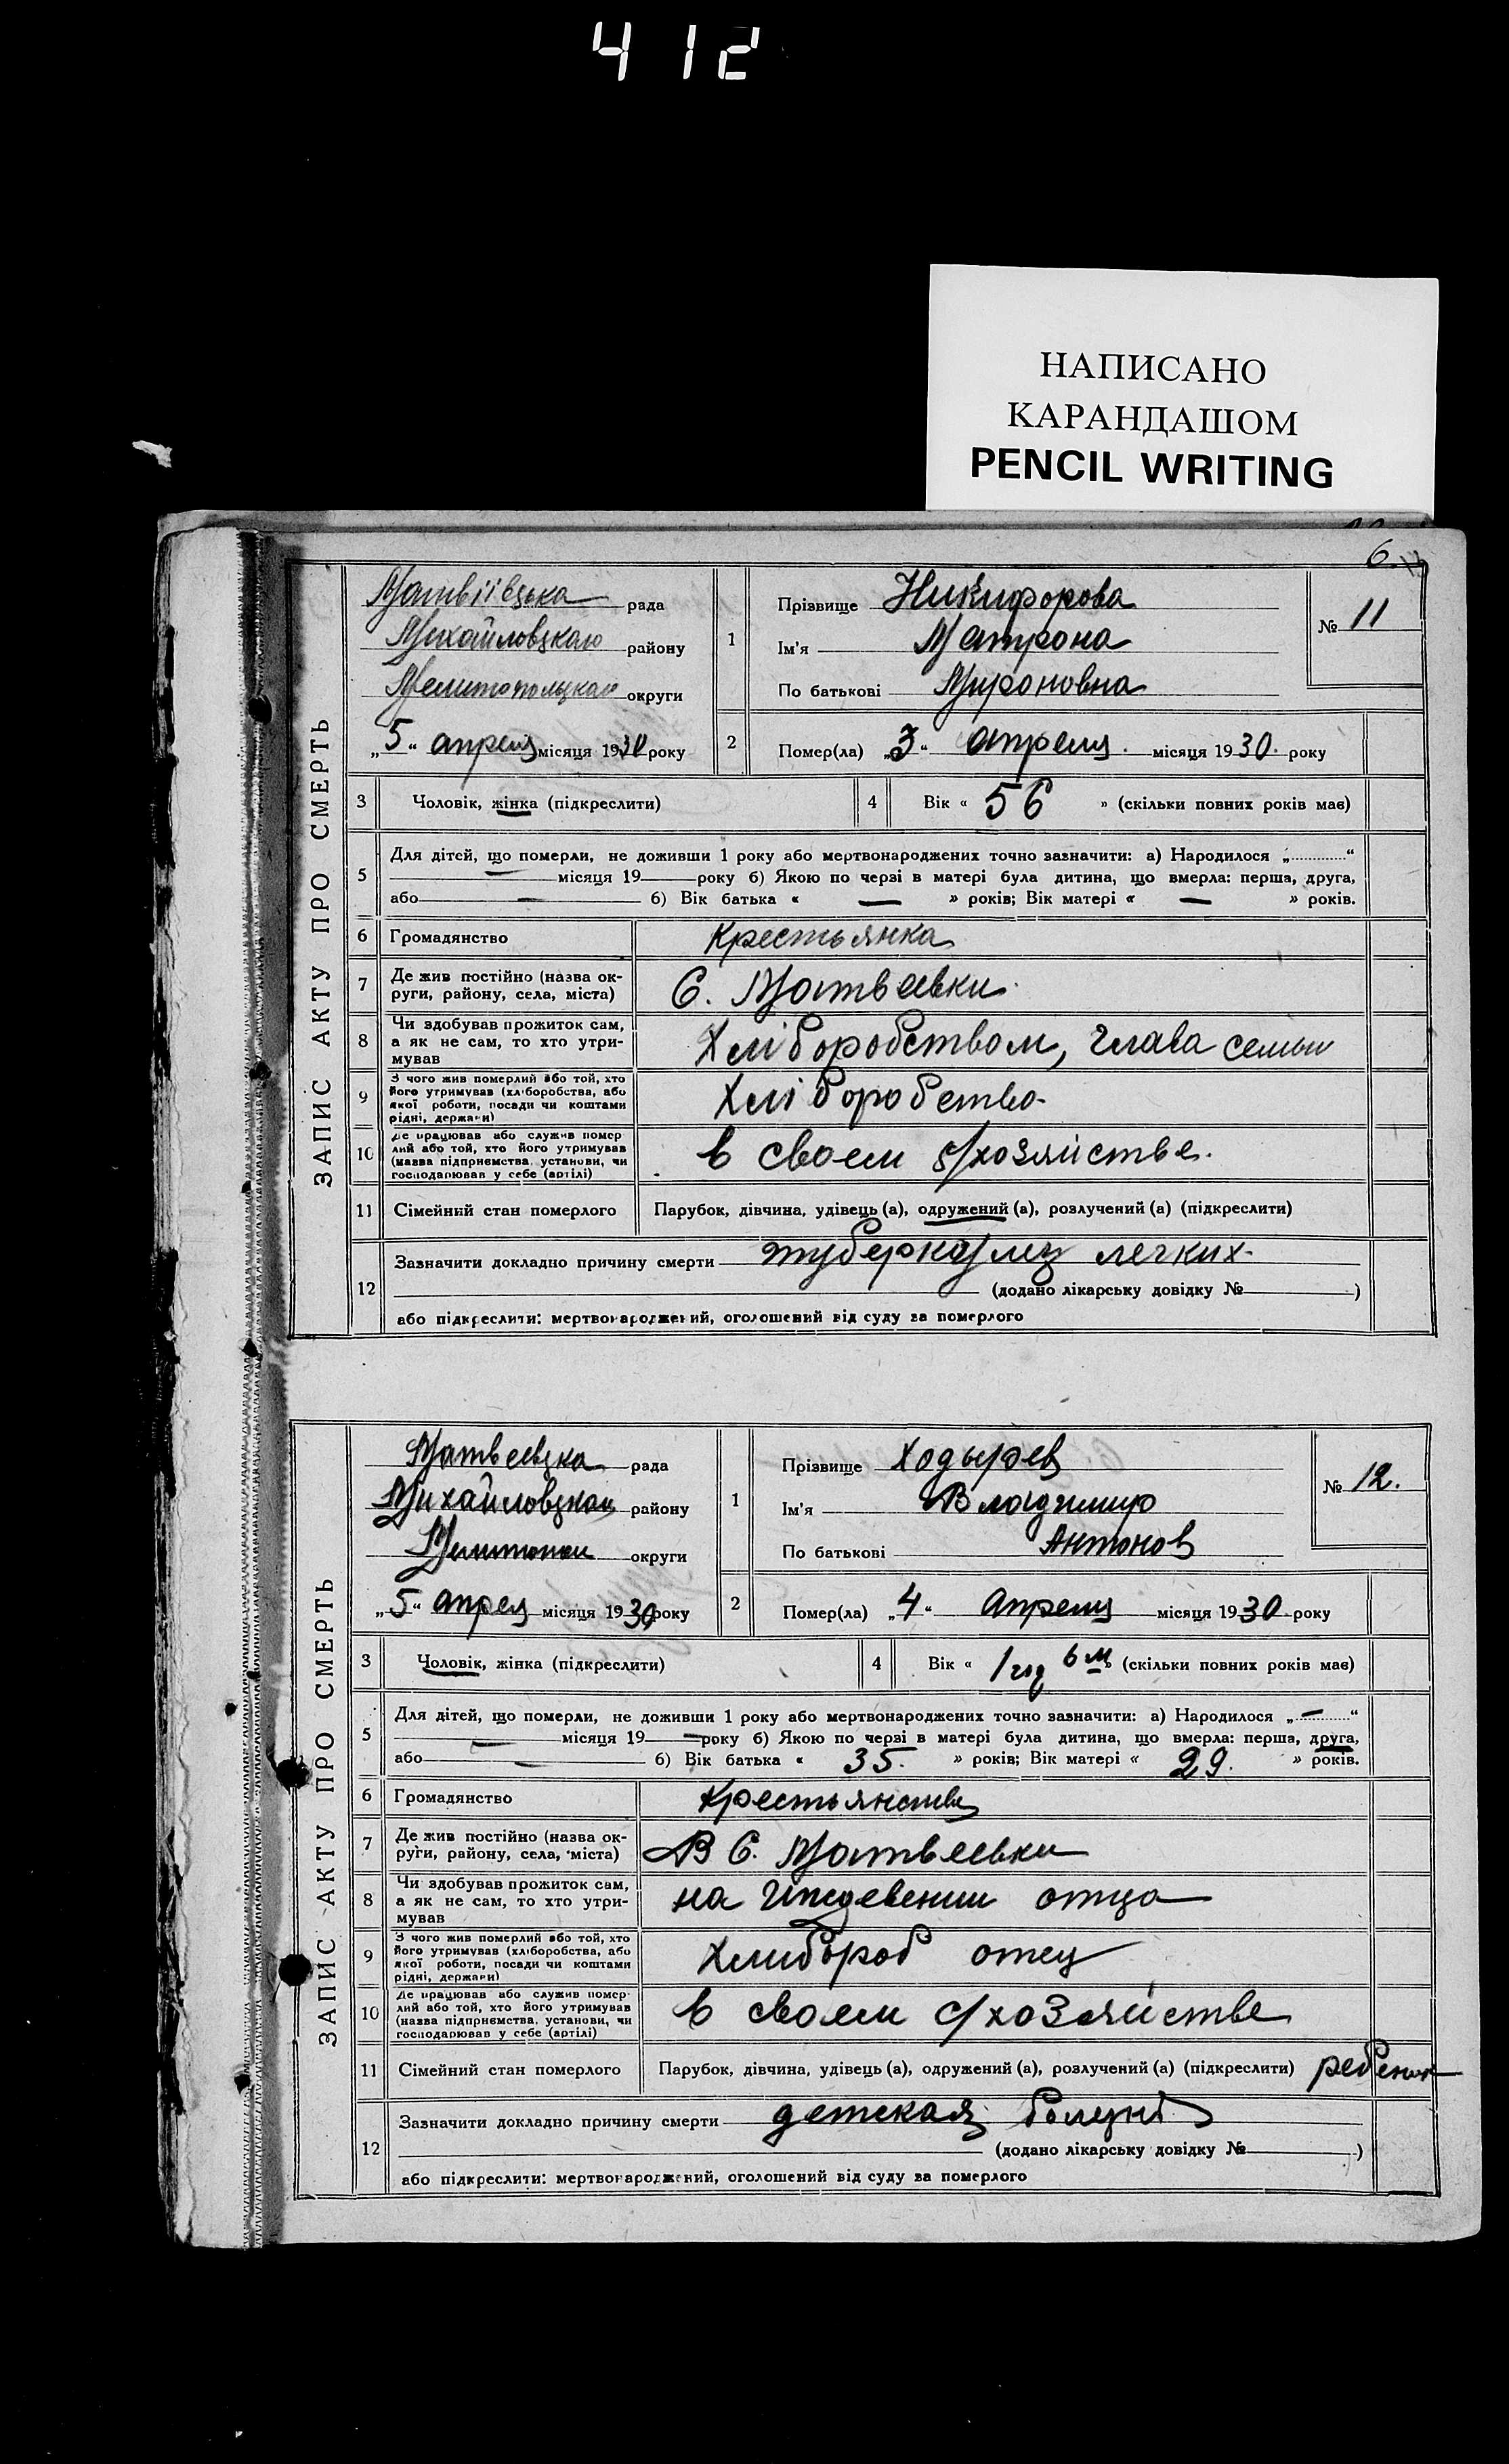 412
НАПИСАНО
КАРАНДАШОМ
PENCIL WRITING
6.
ЗАПИС АКТУ ПРО СМЕРТЬ
Матвіївська рада
Михайловскаго району
Мелитопольскаго округи
„5“ апреля місяця 1930 року
1
Прізвище Никифорова
Ім'я Матрона
По батькові Мироновна
№ 11
2 Помер(ла) „3“ апреля місяця 1930. року
3 Чоловік, жінка (підкреслити)
4 Вік « 56 » (скільки повних років має)
5 Для дітей, що померли, не доживши 1 року або мертвонароджених точно зазначити: а) Народилося „............“
— місяця 19 — року б) Якою по черзі в матері була дитина, що вмерла: перша, друга,
або — б) Вік батька « — » років; Вік матері « — » років.
6 Громадянство Крестьянка
7 Де жив постійно (назва ок-
руги, району, села, міста) С. Матвеевки
8 Чи здобував прожиток сам,
а як не сам, то хто утри-
мував Хліборобством, глава семьи
9 З чого жив померлий або той, хто
його утримував (хліборобства, або
якої роботи, посади чи коштами
рідні, держави) Хліборобство
10 Де працював або служив помер
лий або той, хто його утримував
(назва підприємства, установи, чи
господарював у себе (артілі) в своем с/хозяйстве.
11 Сімейний стан померлого Парубок, дівчина, удівець (а), одружений (а), розлучений (а) (підкреслити)
12 Зазначити докладно причину смерти туберкулез легких
(додано лікарську довідку № )
або підкреслити: мертвонароджений, оголошений від суду за померлого
ЗАПИС АКТУ ПРО СМЕРТЬ
Матвеевска рада
Михайловскаго району
Мелитопол округи
„5“ апреля місяця 1930 року
1
Прізвище Ходырев
Ім'я Владимир
По батькові Антонов
№ 12.
2 Помер(ла) „4“ Апреля місяця 1930 року
3 Чоловік, жінка (підкреслити)
4 Вік « 1 год 6 м » (скільки повних років має)
5 Для дітей, що померли, не доживши 1 року або мертвонароджених точно зазначити: а) Народилося „—“
— місяця 19 — року б) Якою по черзі в матері була дитина, що вмерла: перша, друга,
або — б) Вік батька « 35. » років; Вік матері « 29. » років.
6 Громадянство
7 Де жив постійно (назва ок-
руги, району, села, міста) В С. Матвеевки
8 Чи здобував прожиток сам,
а як не сам, то хто утри-
мував на иждевении отца
9 З чого жив померлий або той, хто
його утримував (хліборобства, або
якої роботи, посади чи коштами
рідні, держави) Хлибороб отец
10 Де працював або служив помер
лий або той, хто його утримував
(назва підприємства, установи, чи
господарював у себе (артілі) в своем с/хозяйстве
11 Сімейний стан померлого Парубок, дівчина, удівець (а), одружений (а), розлучений (а) (підкреслити) ребенок
12 Зазначити докладно причину смерти детская болезнь
(додано лікарську довідку № )
або підкреслити: мертвонароджений, оголошений від суду за померлого